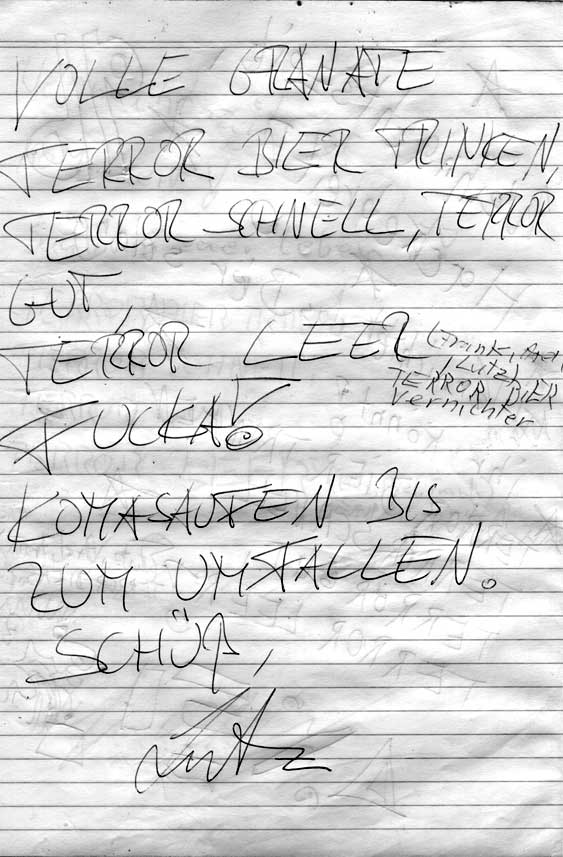 VOLLE GRANATE
TERROR BIER TRINKEN,
TERROR SCHNELL, TERROR
GUT,
TERROR LEER
Lutz)
TERROR BIER
Vernichter
FUCKA!
KOMASAUFEN BIS
ZUM UMFALLEN.
SCHÜß,
Lutz